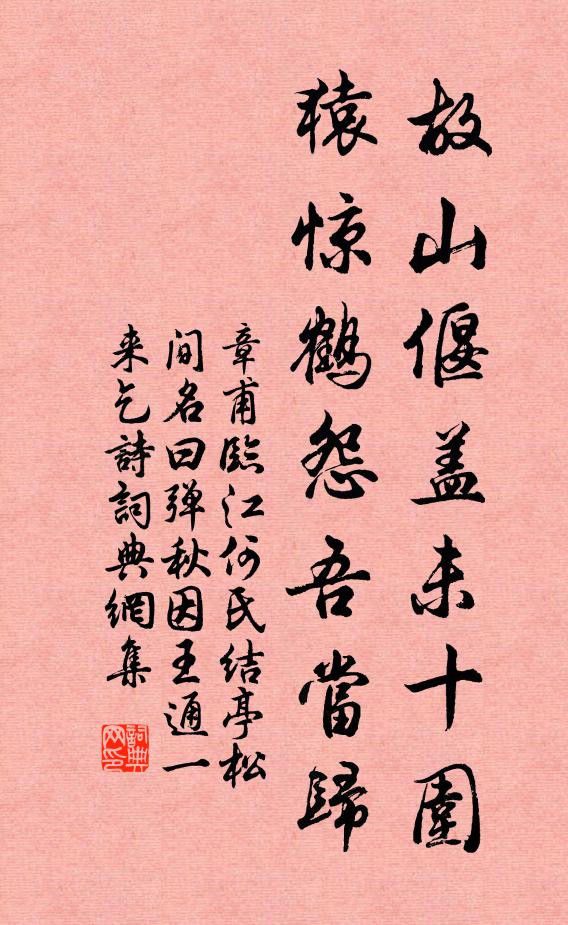 故山偃盖未十圍
猿惊鶴怨吾當歸
章甫臨江何氏结亭松
间名曰弹秋因王通一
来乞詩詞典網集
詞典网印